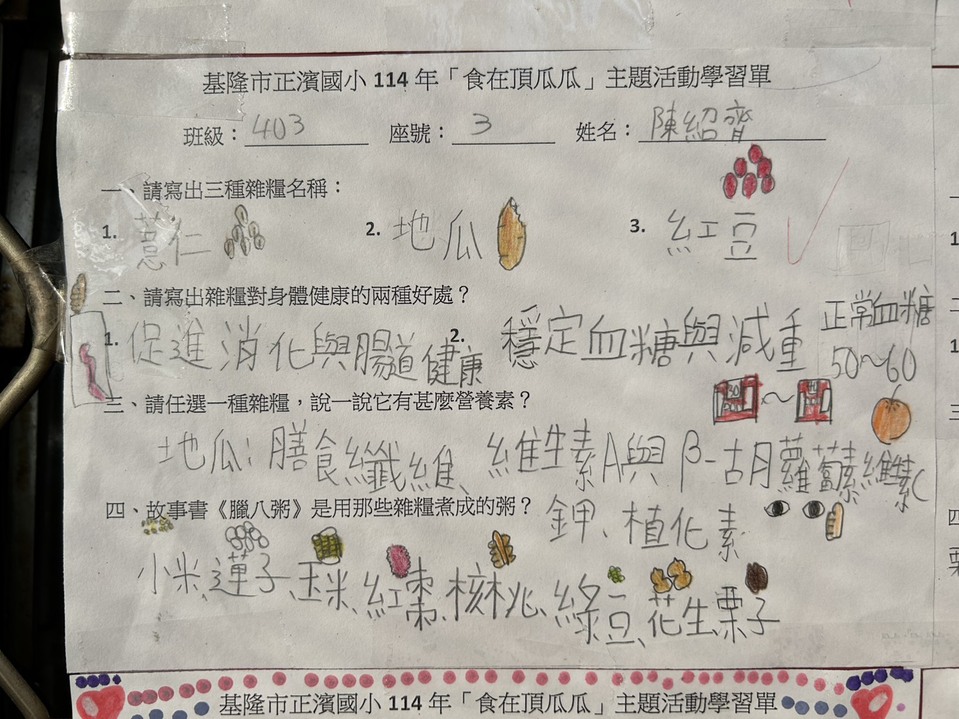 基隆市正濱國小 114 年「食在頂瓜瓜」主題活動學習單
班級：403 座號：3 姓名：陳紹齊
一、請寫出三種雜糧名稱：
1. 薏仁 2. 地瓜 3. 紅豆
二、請寫出雜糧對身體健康的兩種好處？
1. 促進消化與腸道健康 2. 穩定血糖與減重 正常血糖
50～60
三、請任選一種雜糧，說一說它有甚麼營養素？
地瓜：膳食纖維、維生素A與β-胡蘿蔔素維生素C
鉀、植化素
四、故事書《臘八粥》是用那些雜糧煮成的粥？
小米、蓮子、玉米、紅棗、核桃、綠豆、花生、栗子
基隆市正濱國小 114 年「食在頂瓜瓜」主題活動學習單